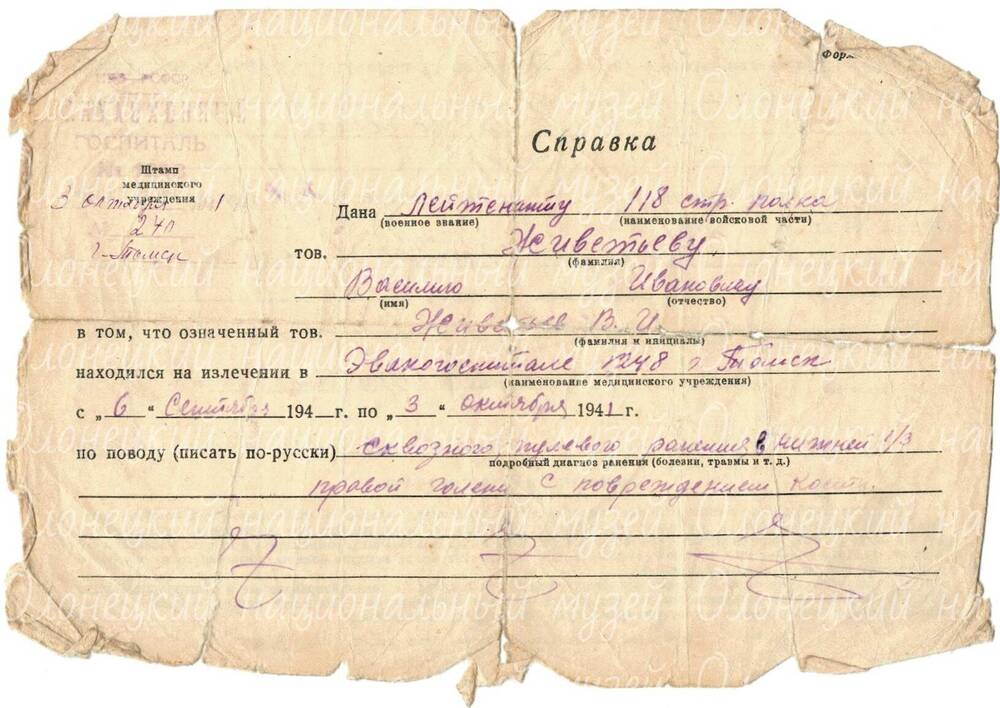 Фор
НКЗ РСФСР
ГОСПИТАЛЬ
Справка
Штамп
медицинского
учреждения
3 октября 1
240
г. Томск
Дана Лейтенанту 118 стр. полка
(военное звание) (наименование войсковой части)
тов. Живетьеву
(фамилия)
Василию Ивановичу
(имя) (отчество)
в том, что означенный тов. Живетьев В. И.
(фамилия и инициалы)
находился на излечении в Эвакогоспитале 1248 г. Томск
(наименование медицинского учреждения)
с „6“ Сентября 1941 г. по „3“ октября 1941 г.
по поводу (писать по-русски) сквозного, пулевого ранения в нижней 1/3
подробный диагноз ранения (болезни, травмы и т. д.)
правой голени с повреждением кости.
Олонецкий национальный музей Олонецкий на